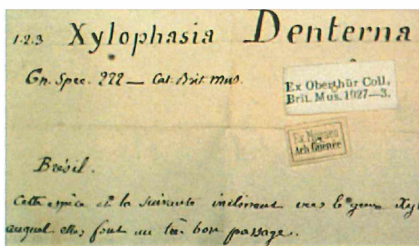 1.2.3 Xylophasia Denterna
Gn. Spec. 222 — Cat. Brit. Mus.
Ex Oberthür Coll.
Brit. Mus. 1927—3.
Ex Musaeo
Ach. Guénée
Brésil.
Cette espèce et la suivante inclinent vers le genre Xyl
auquel elles font un très bon passage.